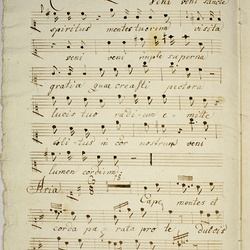 Veni veni sancte
spiritus mentes tuorum visita
veni veni imple superna
gratia quae creasti pectora
lucis tuo radium emitte
coelitus in cor nostrum veni
lumen cordium
Aria
Cape mentes et
corda parata pro te dulcis